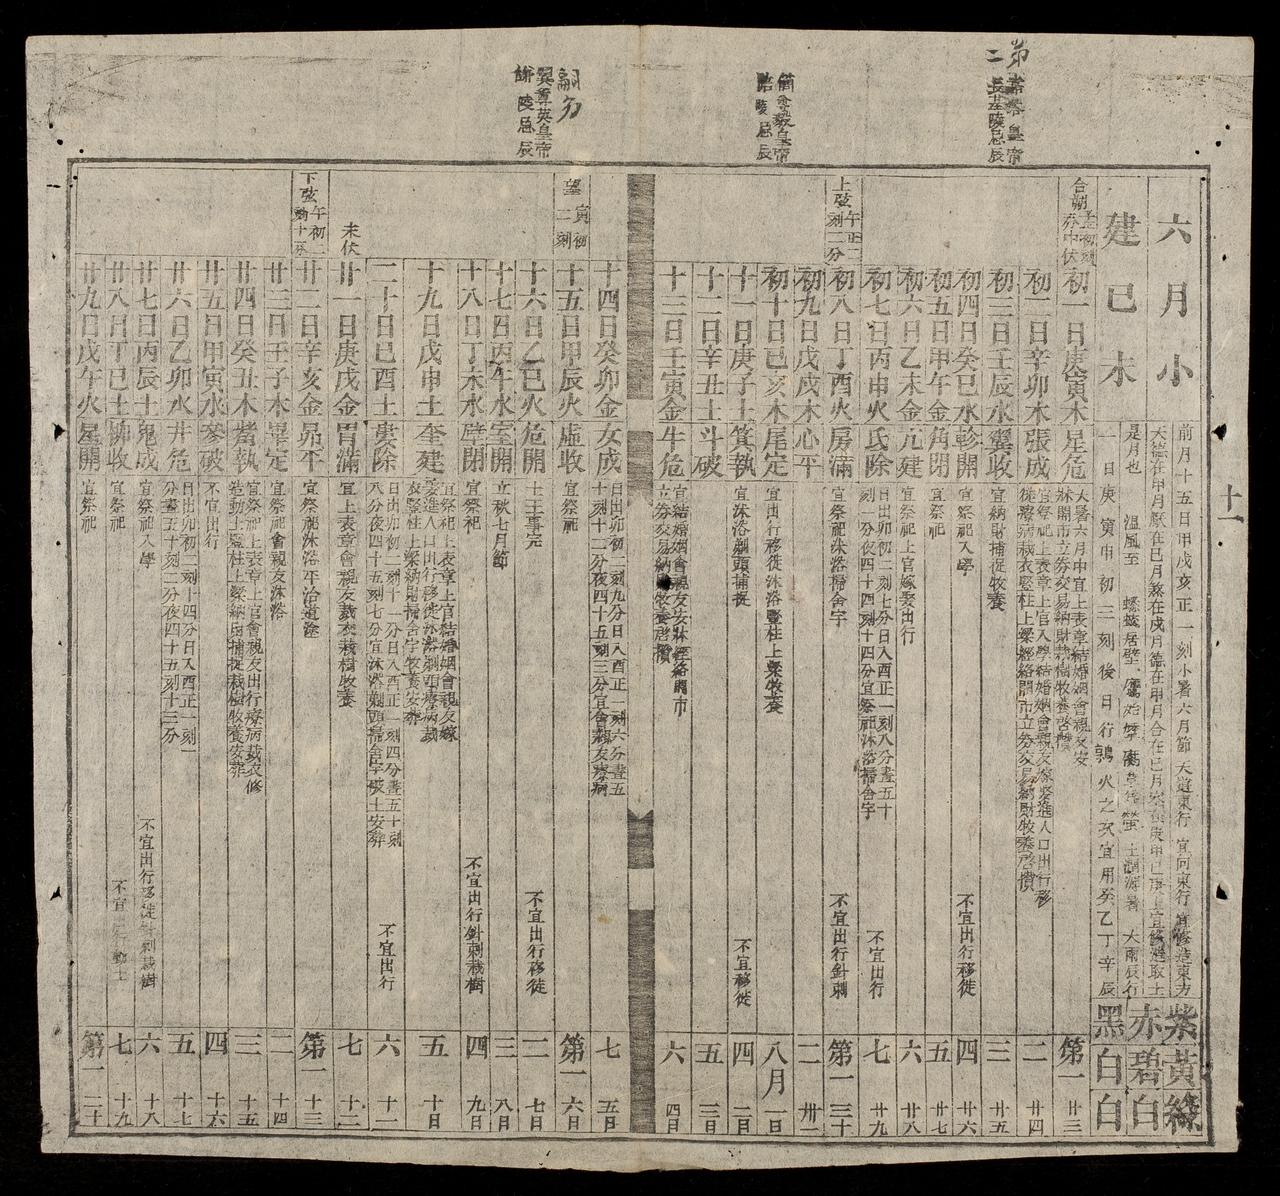 六月小
建己未
前月十五日甲戌亥正一刻小暑六月節 天道東行 宜向東行 宜修造東方
天德在甲月厭在巳月煞在戌月德在甲月合在己月空在庚甲己庚上宜修造取土
是月也 溫風至 蟋蟀居壁 鷹始摯 腐草為螢 土潤溽暑 大雨時行
一日庚寅申初三刻後日行鶉火之次宜用癸乙丁辛辰
紫黃綠
赤碧白
黑白白
十一
合朔
中伏
初一日庚寅木星危 大暑六月中宜上表章結婚姻會親友安牀開市立券交易納財栽樹牧養啓攢 第一 廿三
初二日辛卯木張成 宜祭祀上表章上官入學結婚姻會親友嫁娶進人口出行移徙療病裁衣豎柱上梁經絡開市立券交易納財牧養啓攢 二 廿四
初三日壬辰水翼收 宜納財捕捉牧養 三 廿五
初四日癸巳水軫開 宜祭祀入學 不宜出行移徙 四 廿六
初五日甲午金角閉 宜祭祀 五 廿七
初六日乙未金亢建 宜祭祀上官嫁娶出行 六 廿八
初七日丙申火氐除 日出卯初二刻七分日入酉正一刻八分晝五十刻一分夜四十四刻十四分宜祭祀沐浴掃舍宇 不宜出行 七 廿九
上弦午正二刻二分
初八日丁酉火房滿 宜祭祀沐浴掃舍宇 不宜出行針刺 第一 三十
初九日戊戌木心平 二 卅一
初十日己亥木尾定 宜出行移徙沐浴豎柱上梁牧養 三 八月一日
十一日庚子土箕執 宜沐浴剃頭捕捉 不宜移徙 四 二日
十二日辛丑土斗破 五 三日
十三日壬寅金牛危 宜結婚姻會親友安牀經絡開市立券交易納財牧養啓攢 六 四日
十四日癸卯金女成 日出卯初二刻九分日入酉正一刻六分晝五十刻十二分夜四十五刻三分宜會親友療病 七 五日
望寅初二刻
十五日甲辰火虛收 宜祭祀 第一 六日
十六日乙巳火危開 土王事完 不宜出行移徙 二 七日
十七日丙午水室開 立秋七月節 三 八日
十八日丁未水壁閉 宜祭祀 不宜出行針刺栽樹 四 九日
十九日戊申土奎建 宜祭祀上表章上官結婚姻會親友嫁娶進人口出行移徙沐浴剃頭療病裁衣豎柱上梁納財掃舍宇牧養安葬 五 十日
二十日己酉土婁除 日出卯初二刻十一分日入酉正一刻四分晝五十刻八分夜四十五刻七分宜沐浴剃頭掃舍宇破土安葬 不宜出行 六 十一
末伏
廿一日庚戌金胃滿 宜上表章會親友裁衣栽樹牧養 七 十二
下弦午初二刻十一分
廿二日辛亥金昴平 宜祭祀沐浴平治道塗 第一 十三
廿三日壬子木畢定 宜祭祀會親友沐浴 二 十四
廿四日癸丑木觜執 宜祭祀上表章上官會親友出行療病裁衣修造動土豎柱上梁納財捕捉栽樹牧養安葬 三 十五
廿五日甲寅水參破 不宜出行 四 十六
廿六日乙卯水井危 日出卯初二刻十四分日入酉正一刻一分晝五十刻二分夜四十五刻十三分 五 十七
廿七日丙辰土鬼成 宜祭祀入學 不宜出行移徙針刺栽樹 六 十八
廿八日丁巳土柳收 宜祭祀 不宜出行動土 七 十九
廿九日戊午火星開 宜祭祀 第一 二十
皇帝
忌辰
陵忌辰
皇帝
英皇帝
陵忌辰